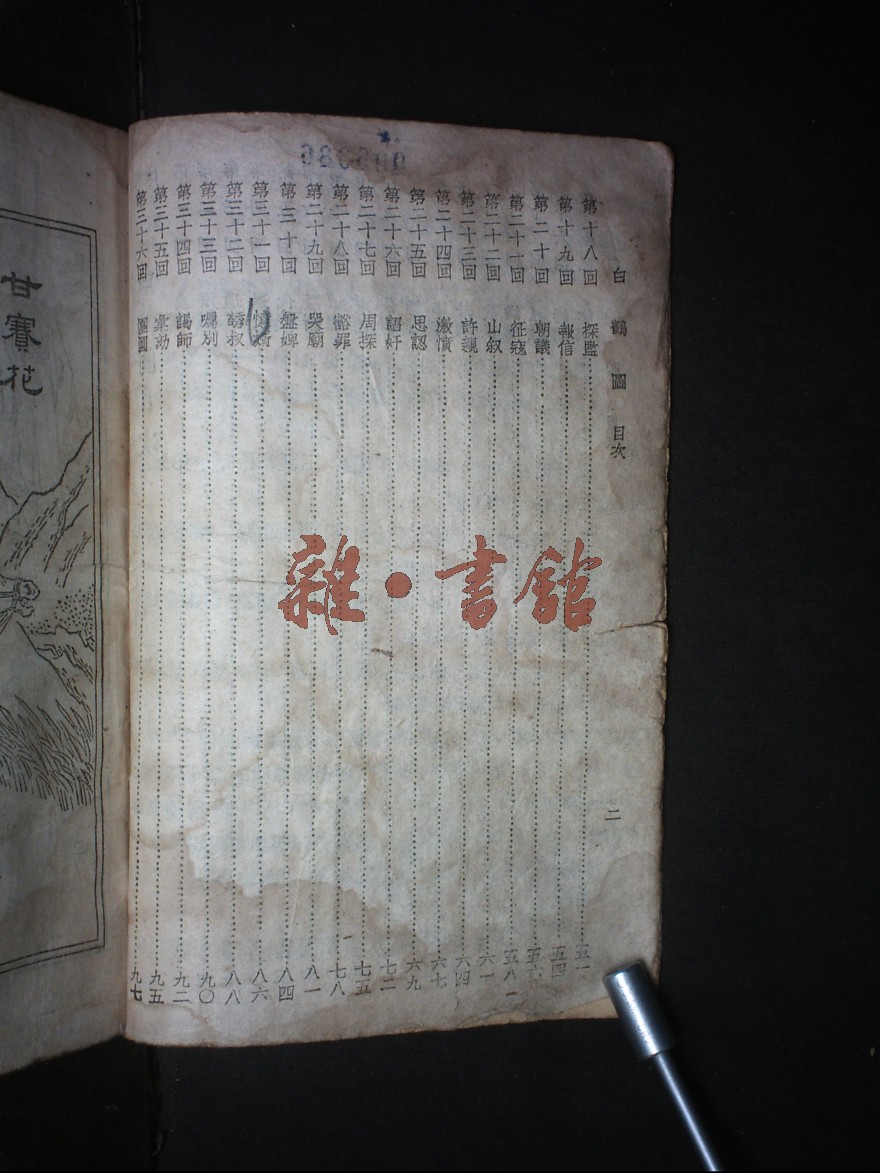 白鶴圖 目次 二
第十八回 探監 五一
第十九回 報信 五四
第二十回 朝議 五六
第二十一回 征寇 五八
第二十二回 山叙 六一
第二十三回 許親 六四
第二十四回 激憤 六七
第二十五回 思認 六九
第二十六回 語奸 七二
第二十七回 周探 七五
第二十八回 豁罪 七八
第二十九回 哭廟 八一
第三十回 盤婢 八四
第三十一回 八六
第三十二回 叔 八八
第三十三回 囑別 九〇
第三十四回 謁師 九二
第三十五回 九五
第三十六回 圖 九七
甘賽花
雜·書館